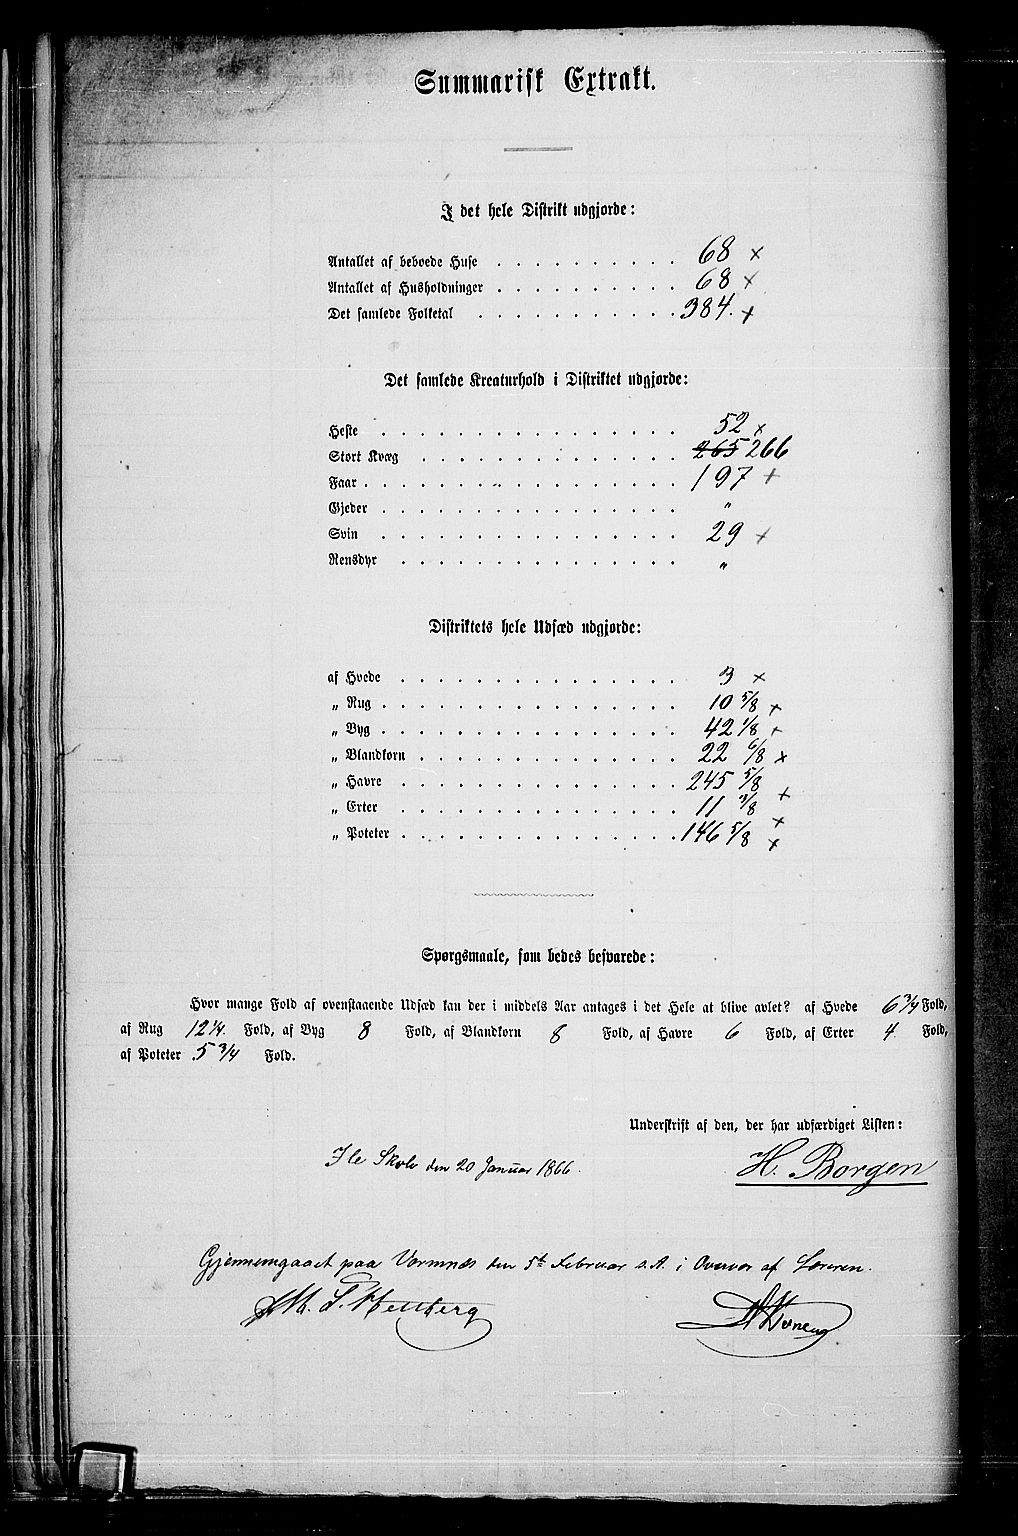 Summarisk Extrakt.
I det hele Distrikt udgjorde:
Antallet af beboede Huse . . . . . . . . . . 68 ×
Antallet af Husholdninger . . . . . . . . . . 68 ×
Det samlede Folketal . . . . . . . . . . 384. ×
Det samlede Kreaturhold i Distriktet udgjorde:
Heste . . . . . . . . . . 52 ×
Stort Kvæg . . . . . . . . . . 265 266
Faar . . . . . . . . . . 197 +
Gjeder . . . . . . . . . . "
Svin . . . . . . . . . . 29 +
Rensdyr . . . . . . . . . . "
Distriktets hele Udsæd udgjorde:
af Hvede . . . . . . . . . . 3 ×
„ Rug . . . . . . . . . . 10 5/8 ×
„ Byg . . . . . . . . . . 42 1/8 +
„ Blandkorn . . . . . . . . . . 22 6/8 ×
„ Havre . . . . . . . . . . 245 5/8 +
„ Erter . . . . . . . . . . 11 3/8 ×
„ Poteter . . . . . . . . . . 146 5/8 ×
Spørgsmaale, som bedes besvarede:
Hvor mange Fold af ovenstaaende Udsæd kan der i middels Aar antages i det Hele at blive avlet? af Hvede 6 3/4 Fold,
af Rug 12 1/4. Fold, af Byg 8 Fold, af Blandkorn 8 Fold, af Havre 6 Fold, af Erter 4 Fold,
af Poteter 5 3/4 Fold.
Underskrift af den, der har udfærdiget Listen:
Ile Skole den 20 Januar 1866. H. Borgen
Gjennemgaaet paa Vormnæs den 5te Februar s. A. i Overvær af Læreren.